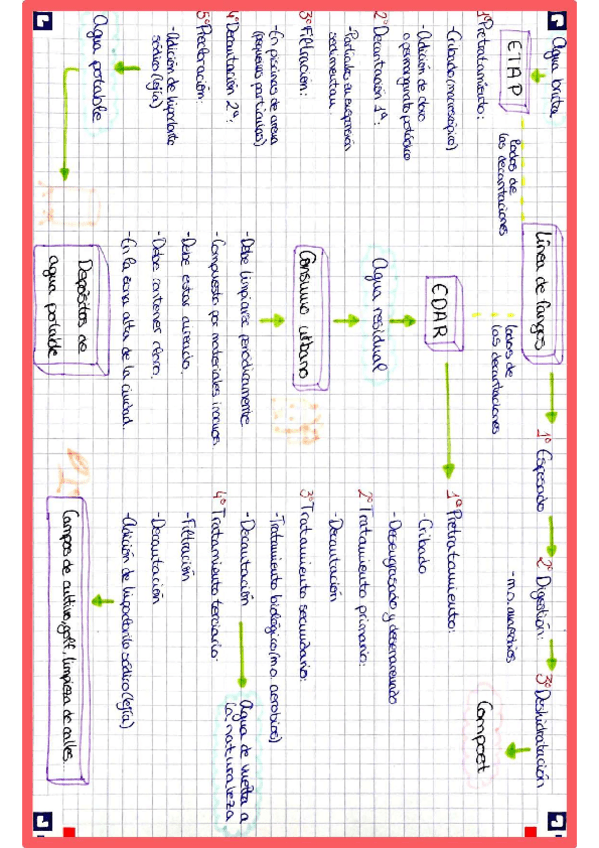 Agua bruta
ETAP
1º Pretratamiento:
- Cribado (macroscópico)
- Adición de cloro
o permanganato potásico
2º Decantación 1ª:
- Partículas en suspensión
sedimentan.
3º Filtración:
- En piscinas de arena
(pequeñas partículas)
4º Decantación 2ª:
5º Postcloración:
- Adición de hipoclorito
sódico (lejía)
Agua potable
lodos de
las decantaciones
Línea de fangos
lodos de
las decantaciones
EDAR
Agua residual
Consumo urbano
- Debe limpiarse periódicamente
- Compuesto por materiales inocuos.
- Debe estar aireado.
- Debe contener cloro.
- En la zona alta de la ciudad.
Depósitos de
agua potable
1º Espesado
2º Digestión:
- m.o. anaerobios
3º Deshidratación
Compost
1º Pretratamiento:
- Cribado
- Desengrasado y desarenado
2º Tratamiento primario:
- Decantación
3º Tratamiento secundario:
- Tratamiento biológico (m.o. aerobios)
- Decantación
Agua de vuelta a
la naturaleza
4º Tratamiento terciario:
- Filtración
- Decantación
- Adición de hipoclorito sódico (lejía)
Campos de cultivo, golf, limpieza de calles.